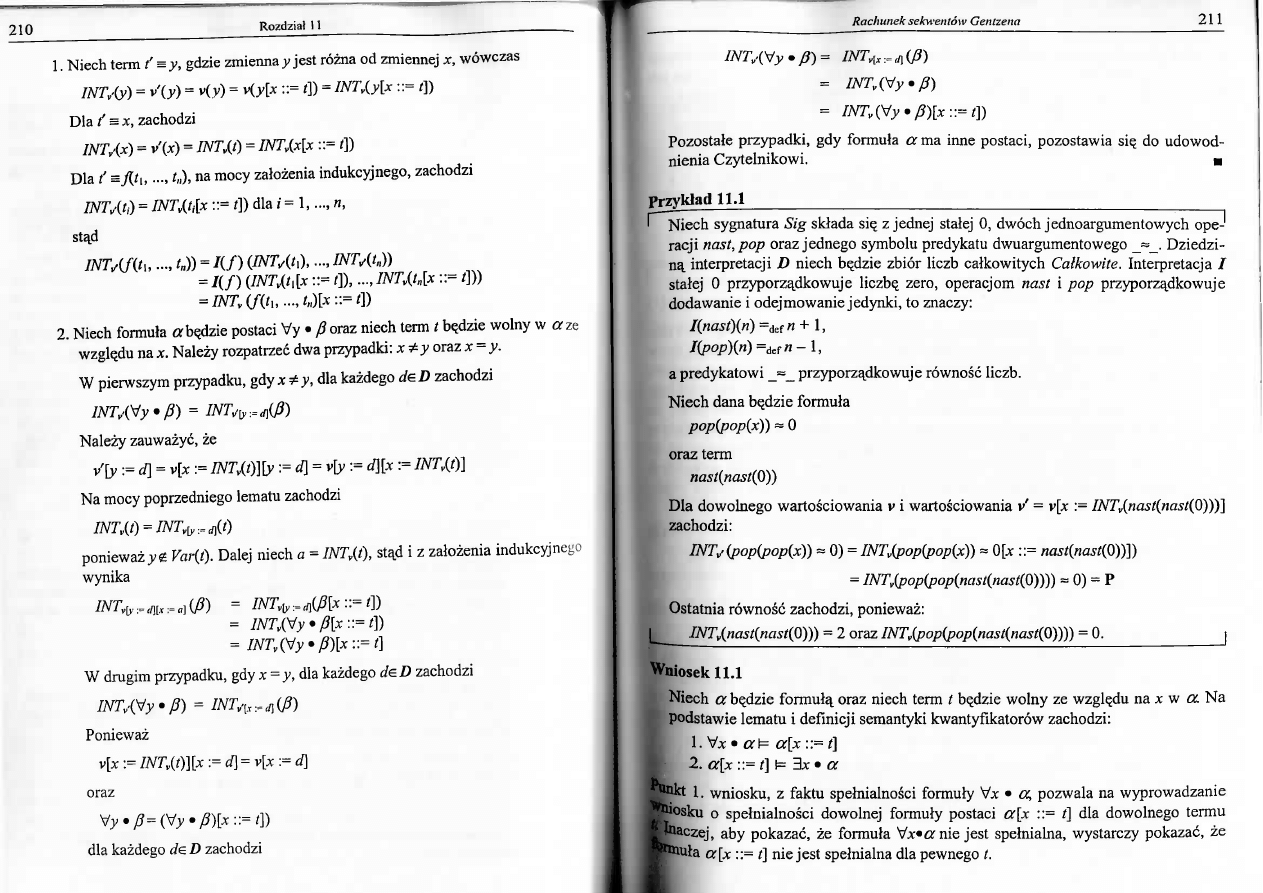 210 Rozdział 11
1. Niech term t' ≡ y, gdzie zmienna y jest różna od zmiennej x, wówczas
INTv'(y) = v'(y) = v(y) = v(y[x ::= t]) = INTv(y[x ::= t])
Dla t' ≡ x, zachodzi
INTv'(x) = v'(x) = INTv(t) = INTv(x[x ::= t])
Dla t' ≡ f(t1, ..., tn), na mocy założenia indukcyjnego, zachodzi
INTv'(ti) = INTv(ti[x ::= t]) dla i = 1, ..., n,
stąd
INTv'(f(t1, ..., tn)) = I(f) (INTv'(t1), ..., INTv'(tn))
= I(f) (INTv(t1[x ::= t]), ..., INTv(tn[x ::= t]))
= INTv (f(t1, ..., tn)[x ::= t])
2. Niech formuła α będzie postaci ∀y • β oraz niech term t będzie wolny w α ze
względu na x. Należy rozpatrzeć dwa przypadki: x ≠ y oraz x = y.
W pierwszym przypadku, gdy x ≠ y, dla każdego d∈D zachodzi
INTv'(∀y • β) = INTv'[y := d](β)
Należy zauważyć, że
v'[y := d] = v[x := INTv(t)][y := d] = v[y := d][x := INTv(t)]
Na mocy poprzedniego lematu zachodzi
INTv(t) = INTv[y := d](t)
ponieważ y∉ Var(t). Dalej niech a = INTv(t), stąd i z założenia indukcyjnego
wynika
INTv[y := d][x := a] (β) = INTv[y := d](β[x ::= t])
= INTv(∀y • β[x ::= t])
= INTv (∀y • β)[x ::= t]
W drugim przypadku, gdy x = y, dla każdego d∈D zachodzi
INTv'(∀y • β) = INTv'[x := d] (β)
Ponieważ
v[x := INTv(t)][x := d] = v[x := d]
oraz
∀y • β = (∀y • β)[x ::= t])
dla każdego d∈D zachodzi
Rachunek sekwentów Gentzena 211
INTv'(∀y • β) = INTv[x := d] (β)
= INTv (∀y • β)
= INTv (∀y • β)[x ::= t])
Pozostałe przypadki, gdy formuła α ma inne postaci, pozostawia się do udowod-
nienia Czytelnikowi. ■
Przykład 11.1
Niech sygnatura Sig składa się z jednej stałej 0, dwóch jednoargumentowych ope-
racji nast, pop oraz jednego symbolu predykatu dwuargumentowego _≈_. Dziedzi-
ną interpretacji D niech będzie zbiór liczb całkowitych Całkowite. Interpretacja I
stałej 0 przyporządkowuje liczbę zero, operacjom nast i pop przyporządkowuje
dodawanie i odejmowanie jedynki, to znaczy:
I(nast)(n) =def n + 1,
I(pop)(n) =def n – 1,
a predykatowi _≈_ przyporządkowuje równość liczb.
Niech dana będzie formuła
pop(pop(x)) ≈ 0
oraz term
nast(nast(0))
Dla dowolnego wartościowania v i wartościowania v' = v[x := INTv(nast(nast(0)))]
zachodzi:
INTv' (pop(pop(x)) ≈ 0) = INTv(pop(pop(x)) ≈ 0[x ::= nast(nast(0))])
= INTv(pop(pop(nast(nast(0)))) ≈ 0) = P
Ostatnia równość zachodzi, ponieważ:
INTv(nast(nast(0))) = 2 oraz INTv(pop(pop(nast(nast(0)))) = 0.
Wniosek 11.1
Niech α będzie formułą oraz niech term t będzie wolny ze względu na x w α. Na
podstawie lematu i definicji semantyki kwantyfikatorów zachodzi:
1. ∀x • α ⊨ α[x ::= t]
2. α[x ::= t] ⊨ ∃x • α
Punkt 1. wniosku, z faktu spełnialności formuły ∀x • α, pozwala na wyprowadzanie
wniosku o spełnialności dowolnej formuły postaci α[x ::= t] dla dowolnego termu
Inaczej, aby pokazać, że formuła ∀x•α nie jest spełnialna, wystarczy pokazać, że
formuła α[x ::= t] nie jest spełnialna dla pewnego t.